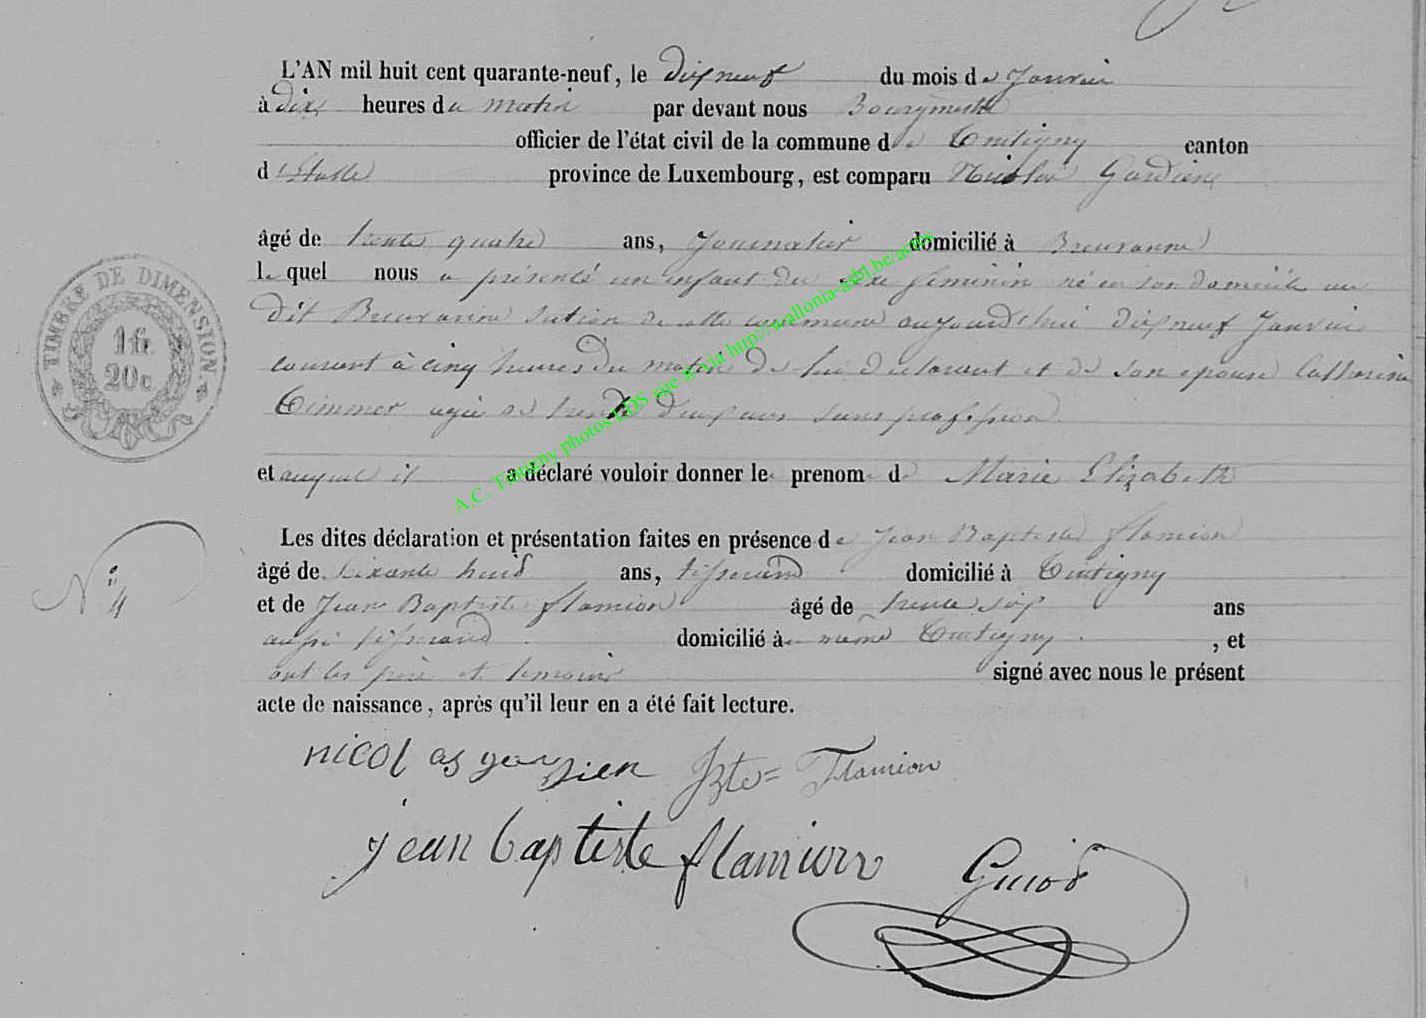 L'AN mil huit cent quarante-neuf, le dix neuf du mois de Janvier
à dix heures du matin par devant nous Bourgmestre
officier de l'état civil de la commune de Tintigny canton
d'Etalle province de Luxembourg, est comparu Nicolas Gardien
âgé de trente quatre ans, Journalier domicilié à Breuvanne
le quel nous a présenté un enfant du sexe féminin né en son domicile au
dit Breuvanne section de cette commune aujourd'hui dix neuf Janvier
courant à cinq heures du matin de lui déclarant et de son épouse Catherine
Timmer agée de trente ans sans profession
et auquel il a déclaré vouloir donner le prenom de Marie Elizabeth
Les dites déclaration et présentation faites en présence de Jean Baptiste flamion
âgé de soixante huit ans, tisserand domicilié à Tintigny
N° 4
et de Jean Baptiste flamion âgé de trente six ans
aussi tisserand domicilié à même Tintigny , et
ont les père et temoins signé avec nous le présent
acte de naissance, après qu'il leur en a été fait lecture.
nicolas gardien Jbte= Flamion
jean baptiste flamion Guiot
TIMBRE DE DIMENSION
1 fr.
20 c
A.C. Tintigny photos LDS site via http://wallonia-asbl.be/actes